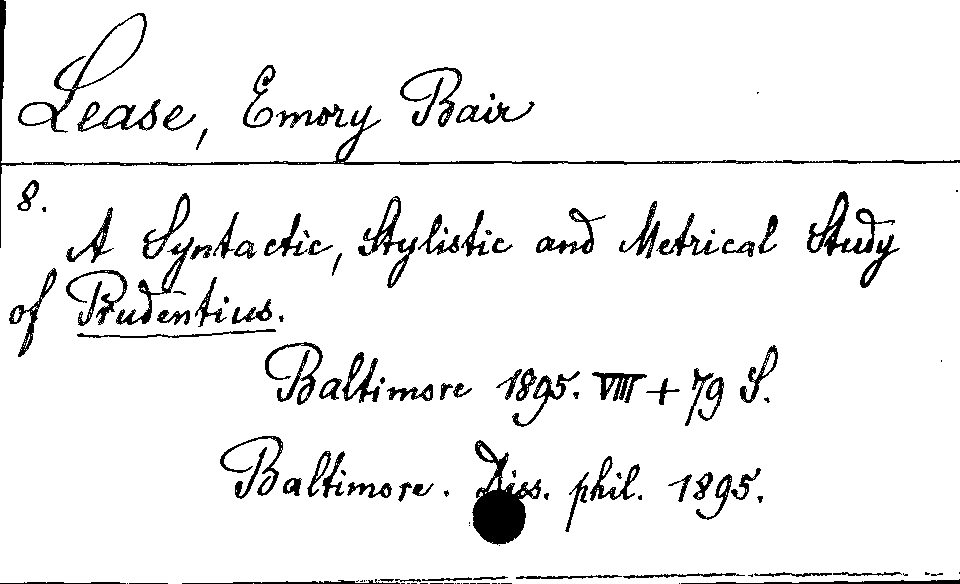 Lease, Emory Bair
8.
A Syntactic, Stylistic and Metrical Study
of Prudentius.
Baltimore 1895. VIII + 79 S.
Baltimore. Diss. phil. 1895.